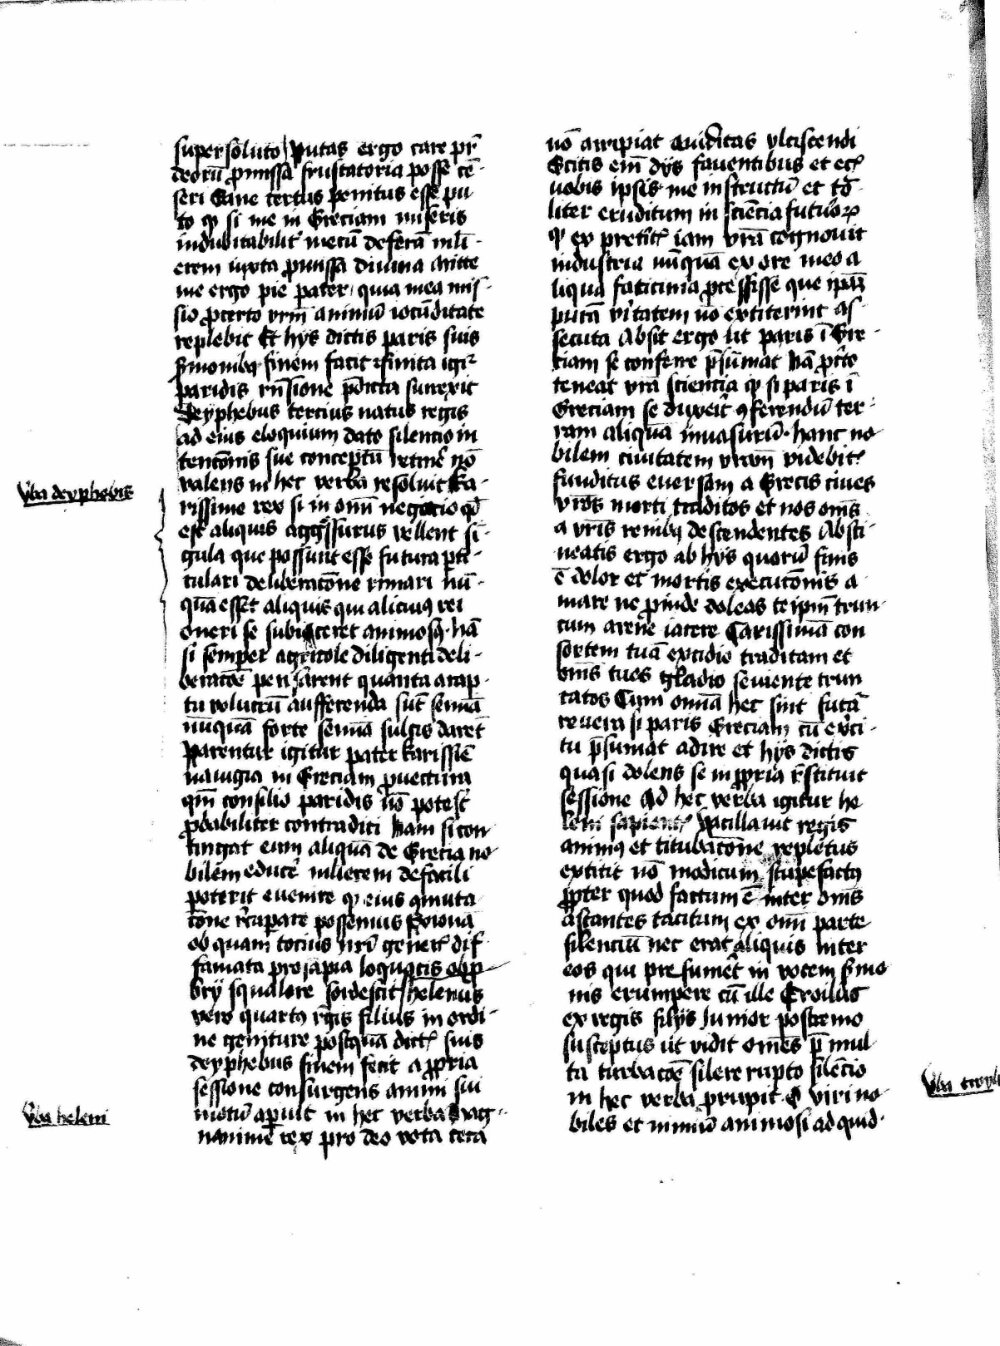 super soluto putas ergo care pr̄
deorū ꝓmissa frustatoria posse cē-
seri Sane certus penitus esse pu
to ꝙ si me in Greciam miseris
indubitabilit᷑ mecū deferā mli-
erem iuxta ꝓmissa diuina Mitte
me ergo pie pater quia mea mis-
sio ꝓcerto vr̄m animū iocūditate
replebit Et hijs dictis paris suis
s̄monibꝫ finem facit finita igi᷑
paridis rn̄sione p̄dicta surexit
Deyphebus tercius natus regis
ad eius eloquium dato silencio in
tencōnis sue conceptū retinē nō
valens in hec verba resoluit Ka-
rissime rex si in om̄i negocio qd̄
est aliquis agḡssurus vellent sī-
gula que possunt esse futura ꝑti-
culari deliberacōne rimari nū-
quā esset aliquis qui alicuiꝰ rei
oneri se subiiceret animosꝫ. Nā
si semper agricole diligenti deli-
beracōe pensarent quanta a rap-
tu volucrū aufferenda sūt semīa
nūquā forte semīa sulcis darēt
Parentur igitur pater karissīe
nauigia in Greciam ꝓuectura
qm̄ consilio paridis nō potest
ꝓbabiliter contradici Nam si con
tingat eum aliquā de Grecia no
bilem educē mlierem de facili
poterit euenire ꝙ eius ꝑmuta
cōne r̄cupare possemus Exionā
ob quam tocius nr̄i gener᷑ dif
famata prosapia loquacis obp̄
brij squalore sordescit Helenus
vero quartꝰ r̄gis filius in ordi-
ne geniture postquā dict᷑ suis
deyphebus finem fecit a ꝓpria
sessione consurgens animi sui
motū aꝑuit in hec verba Mag-
nanime rex pro deo vota cera
Vba deyphebis
Vba heleni
nō arripiat auiditas vlciscendi
Scitis eī dijs fauentibus et ex
vobis ipsis me instructū et to
liter eruditum in sciencia futuroꝝ
ꝙ ex pretit᷑ iam vr̄a cognouit
industria nūquā ex ore meo a
liqua faticinia ꝓcessisse que ipaꝫ
putā vītatem nō extiterint as
secuta Absit ergo ut paris ī Gre
ciam se conferre p̄sūmat Nā ꝓcto
teneat vr̄a sciencia ꝙ si paris ī
Greciam se duxeit ꝯferendū ter-
ram aliquā inuasurū. hanc no
bilem ciuitatem vr̄am videbit᷑
funditus euersam a Grecis ciues
vr̄os morti traditos et nos om̄s
a vr̄is renibꝫ descendentes Absti
neatis ergo ab hijs quorū finis
ē dolor et mortis execucōnis a
mare ne ꝓinde doleas te ipm̄ trun
cum arene iacere Carissimā con
sortem tuā excidio traditam et
om̄s tues gladio seuiente trun
catos Cum om̄ia hec sint futā
reuera si paris Greciam cū exci-
tu p̄sumat adire et hijs dictis
quasi dolens se in ꝓpria r̄stituit
sessione Ad hec verba igitur he
leni sapient᷑ vacillauit regis
animꝰ et titubacōne repletus
extitit nō modicum stupefactꝰ
ꝓpter quod factum ē inter om̄s
astantes tacitum ex om̄i parte
silenciū nec erat aliquis inter
eos qui presumēt in vocem s̄mo
nis erumpere cū ille Troilus
ex regis filijs Iunior postremo
susceptus ut vidit om̄es p̄ mul
ta turbacōe silere rupto silēcio
in hec verba ꝓrupit O viri no
biles et nimiū animosi ad quid.
Vba troyli